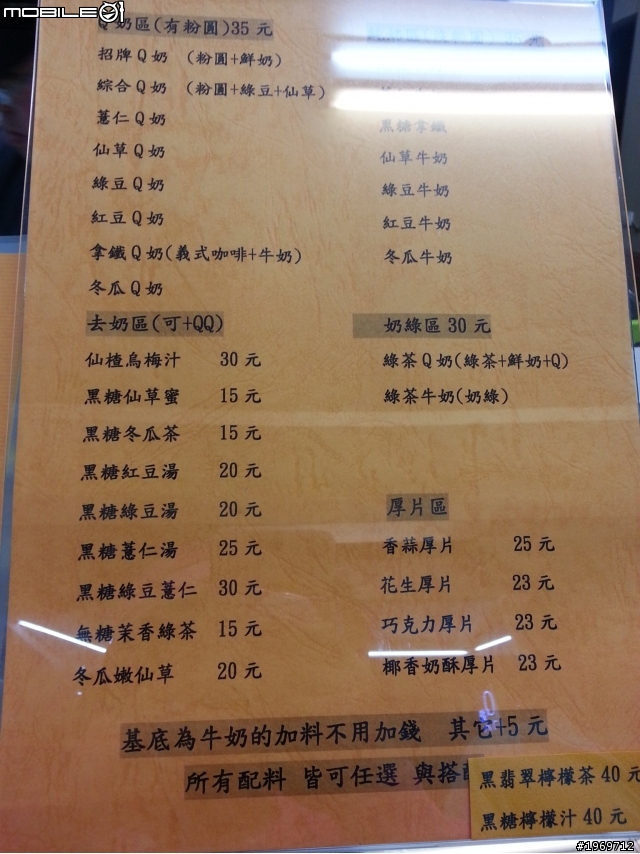 MOBILE01
Q奶區(有粉圓)35元
招牌Q奶 (粉圓+鮮奶)
綜合Q奶 (粉圓+綠豆+仙草)
薏仁Q奶
仙草Q奶
綠豆Q奶
紅豆Q奶
拿鐵Q奶(義式咖啡+牛奶)
冬瓜Q奶
去奶區(可+QQ)
仙楂烏梅汁 30元
黑糖仙草蜜 15元
黑糖冬瓜茶 15元
黑糖紅豆湯 20元
黑糖綠豆湯 20元
黑糖薏仁湯 25元
黑糖綠豆薏仁 30元
無糖茉香綠茶 15元
冬瓜嫩仙草 20元
黑糖拿鐵
仙草牛奶
綠豆牛奶
紅豆牛奶
冬瓜牛奶
奶綠區30元
綠茶Q奶(綠茶+鮮奶+Q)
綠茶牛奶(奶綠)
厚片區
香蒜厚片 25元
花生厚片 23元
巧克力厚片 23元
椰香奶酥厚片 23元
基底為牛奶的加料不用加錢 其它+5元
所有配料 皆可任選 與搭
黑翡翠檸檬茶40元
黑糖檸檬汁40元
#1969712